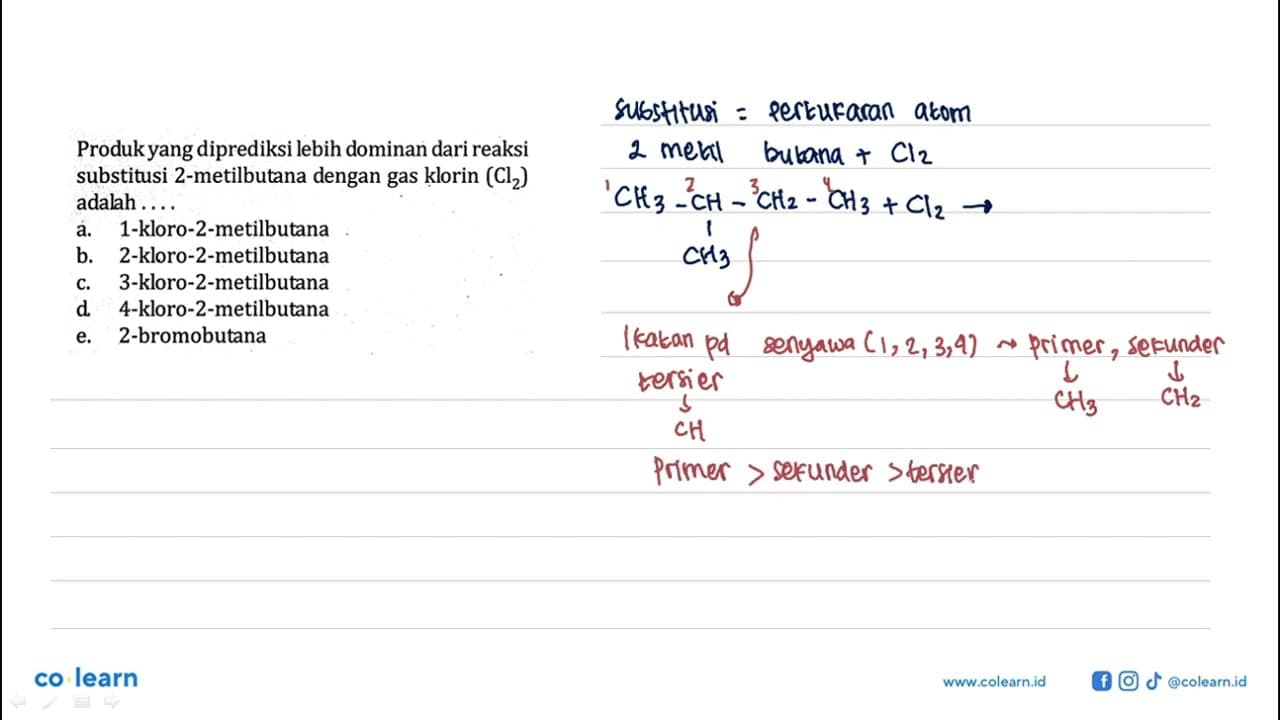 Produk yang diprediksi lebih dominan dari reaksi
substitusi 2-metilbutana dengan gas klorin (Cl₂)
adalah . . . .
a. 1-kloro-2-metilbutana
b. 2-kloro-2-metilbutana
c. 3-kloro-2-metilbutana
d. 4-kloro-2-metilbutana
e. 2-bromobutana
substitusi = pertukaran atom
2 metil butana + Cl2
1 2 3 4
CH3 - CH - CH2 - CH3 + Cl2 →
CH3
Ikatan pd senyawa (1, 2, 3, 4) ~> primer, sekunder
tersier ↓ ↓
↓ CH3 CH2
CH
Primer > sekunder > tersier
co learn
www.colearn.id
@colearn.id